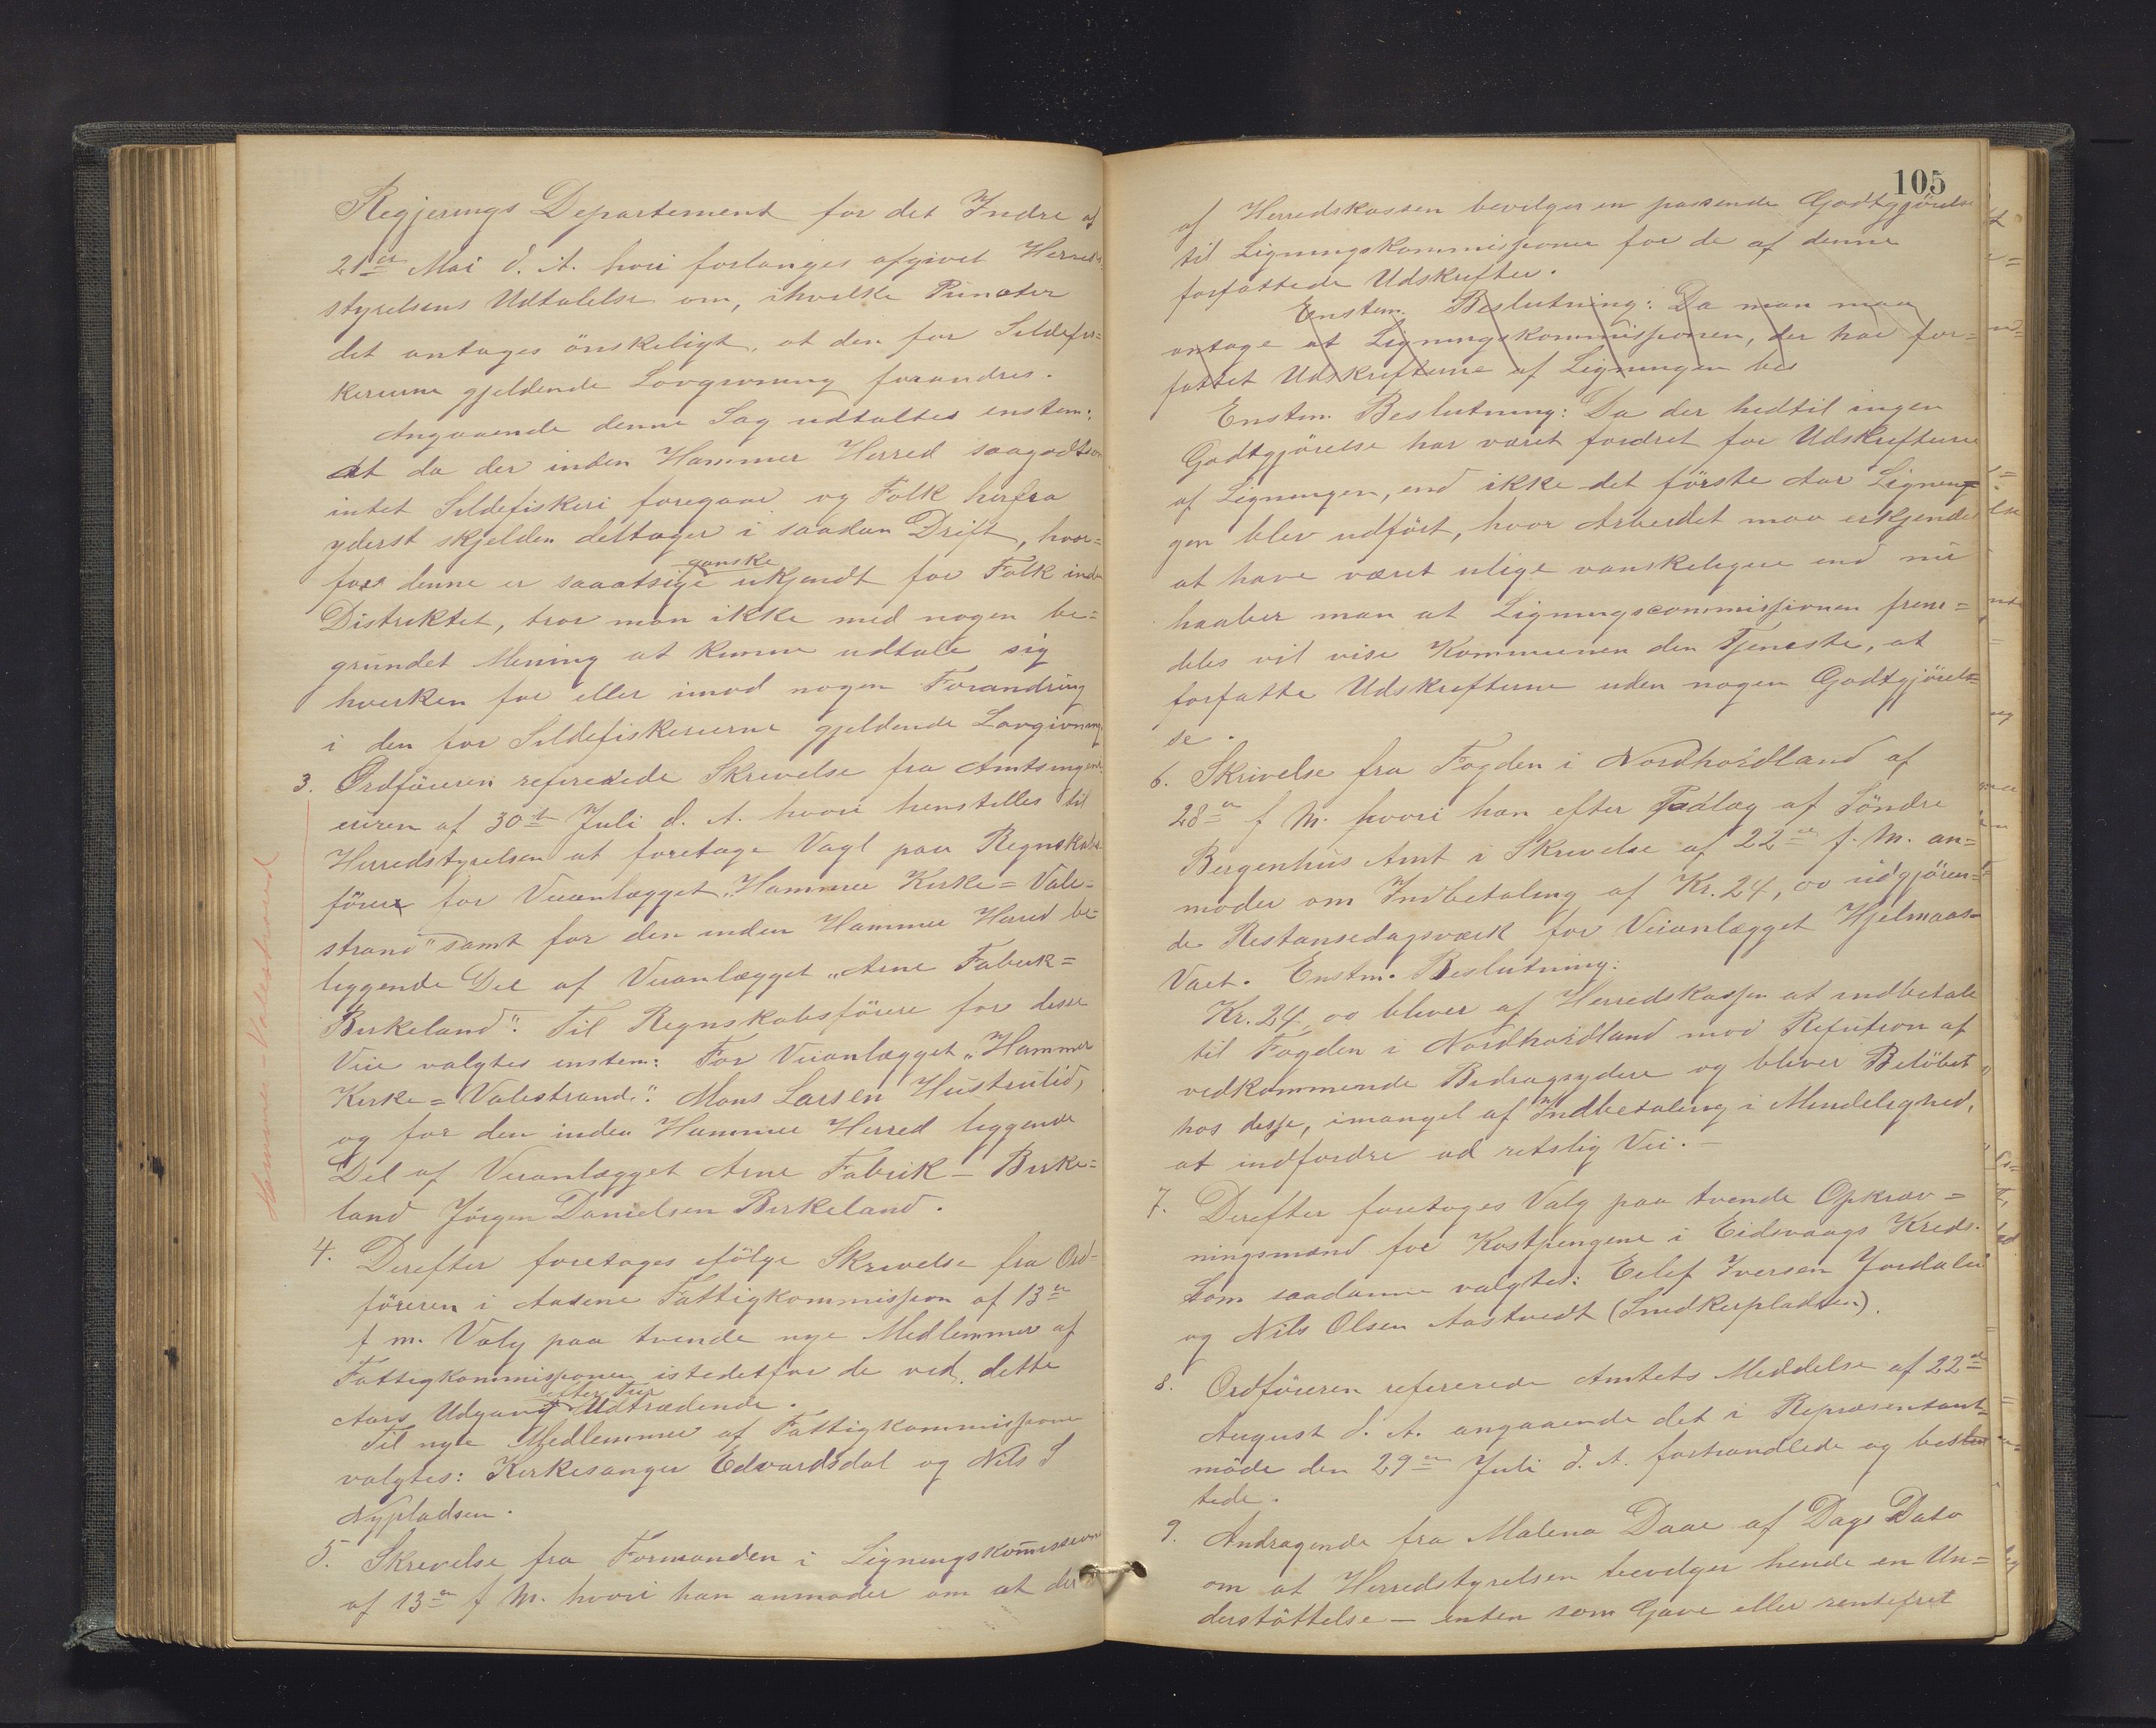 Regjerings Departement for det Indre af
21de Mai d. A. hvori forlanges afgivet Herreds-
styrelsens Udtalelse om, ihvilke Puncter
det antages önskeligt, at den for Sildefis=
kerierne gjeldende Lovgivning forandres.
Angaaende denne Sag udtaltes enstem:
At da der inden Hammer Herred saagodtsom
intet Sildefiskeri foregaar og Folk herfra
yderst skjelden deltager i saadan Drift, hvor=
ganske
for denne er saaatsige ukjendt for Folk inden
Distriktet, tror man ikke med nogen be=
grundet Mening at kunne udtale sig
hverken for eller imod nogen Forandring
i den for Sildefiskerierne gjeldende Lovgivning.
3. Ordföreren refererede Skrivelse fra Amtsingeni-
euren af 30te Juli d. A. hvori henstilles til
Herredstyrelsen at foretage Valg paa Regnskabs-
förer for Veianlægget "Hammer Kirke = Vale-
strand" samt for den inden Hammer Herred be-
liggende Del af Veianlægget "Arne Fabrik =
Birkeland". Til Regnskabsförere for disse
Veie valgtes enstem: For Veianlægget "Hammer
Kirke = Valestrand": Mons Larsen Hustrulid,
og for den inden Hammer Herred liggende
Del af Veianlægget Arne Fabrik - Birke=
land Jörgen Danielsen Birkeland.
Hammer - Valestrand
4. Derefter foretoges ifölge Skrivelse fra Ord-
föreren i Aasene Fattigkommission af 13de
f m. Valg paa tvende nye Medlemmer af
Fattigkommissionen istedetfor de ved dette
efter Tur
Aars Udgang Udtrædende.
Til nye Medlemmer af Fattigkommissionen
valgtes: Kirkesanger Edvardsdal og Nils S
Nypladsen.
5. Skrivelse fra Formanden i Ligningskommissionen
af 13de f M. hvori han anmoder om at der
105
af Herredskassen bevilges en passende Godtgjörelse
til Ligningskommissionen for de af denne
forfattede Udskrifter.
Enstem. Beslutning: Da man maa
antage at Ligningskommissionen, der har for=
fattet Udskrifterne af Ligningen bes
Enstm. Beslutning: Da der hedtil ingen
Godtgjörelse har været fordret for Udskrifterne
af Ligningen, end ikke det förste Aar Lignin=
gen blev udfört, hvor Arbeidet maa erkjendes
at have været ulige vanskeligere end nu
haaber man at Ligningscommissionen frem=
deles vil vise Kommunen den Tjeneste, at
forfatte Udskrifterne uden nogen Godtgjörel=
se.
6. Skrivelse fra Fogden i Nordhordland af
28de f M. hvori han efter Paalæg af Söndre
Bergenhus Amt i Skrivelse af 22de f. M. an=
moder om Indbetaling af Kr. 24,00 udgjören=
de Restansedagsværk for Veianlægget Hjelmaas-
Vaet. Enstm. Beslutning:
Kr. 24,00 bliver af Herredskassen at indbetale
til Fogden i Nordhordland mod Refution af
vedkommende Bidragsydere og bliver Belöbet
hos disse, imangel af Indbetaling i Mindelighed,
at indfordre ad retslig Vei. -
7. Derefter foretoges Valg paa tvende Opkræv=
ningsmænd for Kostpengene i Eidsvaags Kreds.
Som saadanne valgtes: Eilef Iversen Jordalen
og Nils Olsen Aastvedt (Snedkerpladsen).
8. Ordföreren refererede Amtets Meddelse af 22de
August d. A. angaaende det i Repræsentant-
möde den 29de Juli d. A. forhandlede og beslut
tede.
9. Andragende fra Malena Daae af Dags Dato
om at Herredstyrelsen bevilger hende en Un=
derstöttelse - enten som Gave eller rentefrit